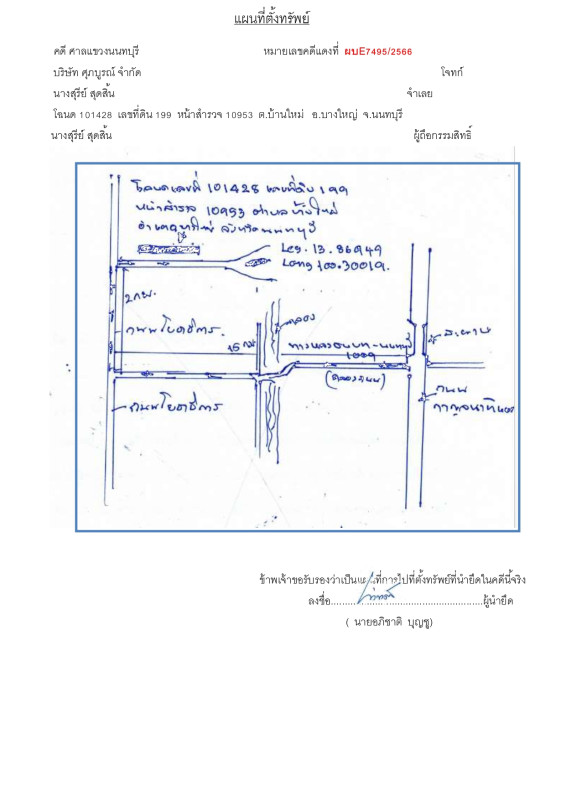 แผนที่ตั้งทรัพย์
คดี ศาลแขวงนนทบุรี หมายเลขคดีแดงที่ ผบE7495/2566
บริษัท ศุภบูรณ์ จำกัด โจทก์
นางสุรีย์ สุดสิ้น จำเลย
โฉนด 101428 เลขที่ดิน 199 หน้าสำรวจ 10953 ต.บ้านใหม่ อ.บางใหญ่ จ.นนทบุรี
นางสุรีย์ สุดสิ้น ผู้ถือกรรมสิทธิ์
โฉนดเลขที่ 101428 เลขที่ดิน 199
หน้าสำรวจ 10953 ตำบลบ้านใหม่
อำเภอบางใหญ่ จังหวัดนนทบุรี
13.86949
Long 100.30019.
2 กม.
คลอง
สะพาน
ถนนโยธาธิการ
15 กม
ทางหลวงชนบท-นนทบุรี
1009
ถนน
กาญจนาภิเษก
ถนนโยธาธิการ
ข้าพเจ้าขอรับรองว่าเป็นแผนที่การไปที่ตั้งทรัพย์ที่นำยึดในคดีนี้จริง
ลงชื่อ..........ผู้นำยึด
( นายอภิชาติ บุญชู)